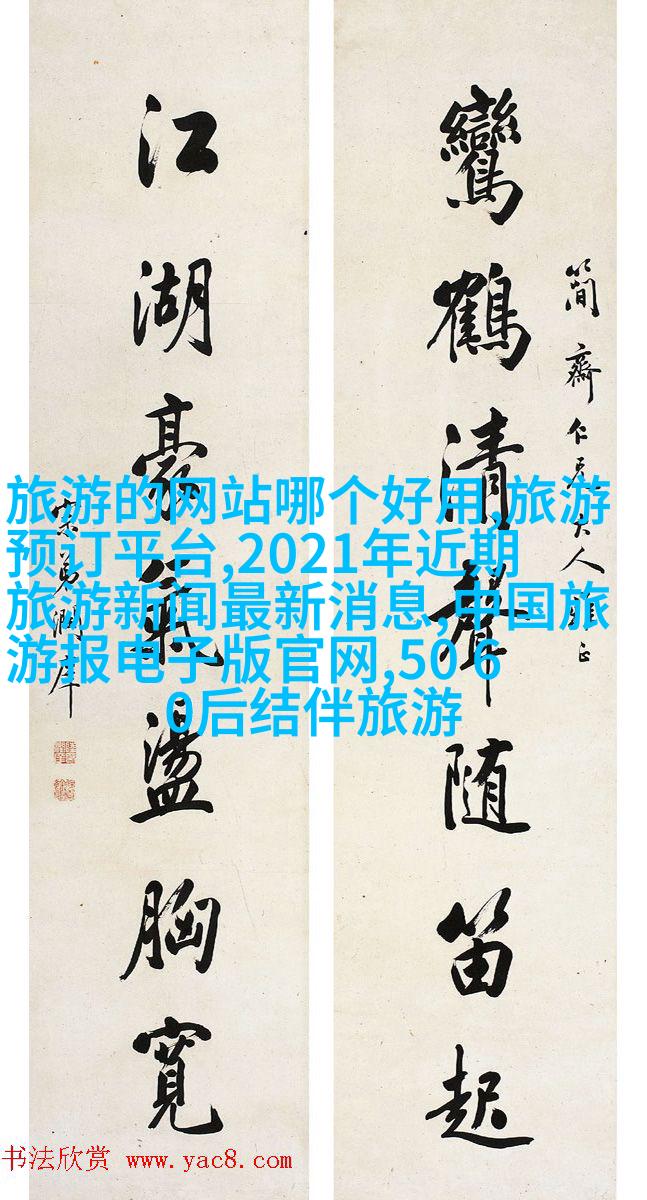 簡齋仁兄大人雅正
鸞鶴清聲随笛起
江湖豪氣盪胸寬
宗弟潤庠
旅游的网站哪个好用,旅游
预订平台,2021年近期
旅游新闻最新消息,中国旅
游报电子版官网,50 6
0后结伴旅游
书法欣赏 www.yac8.com